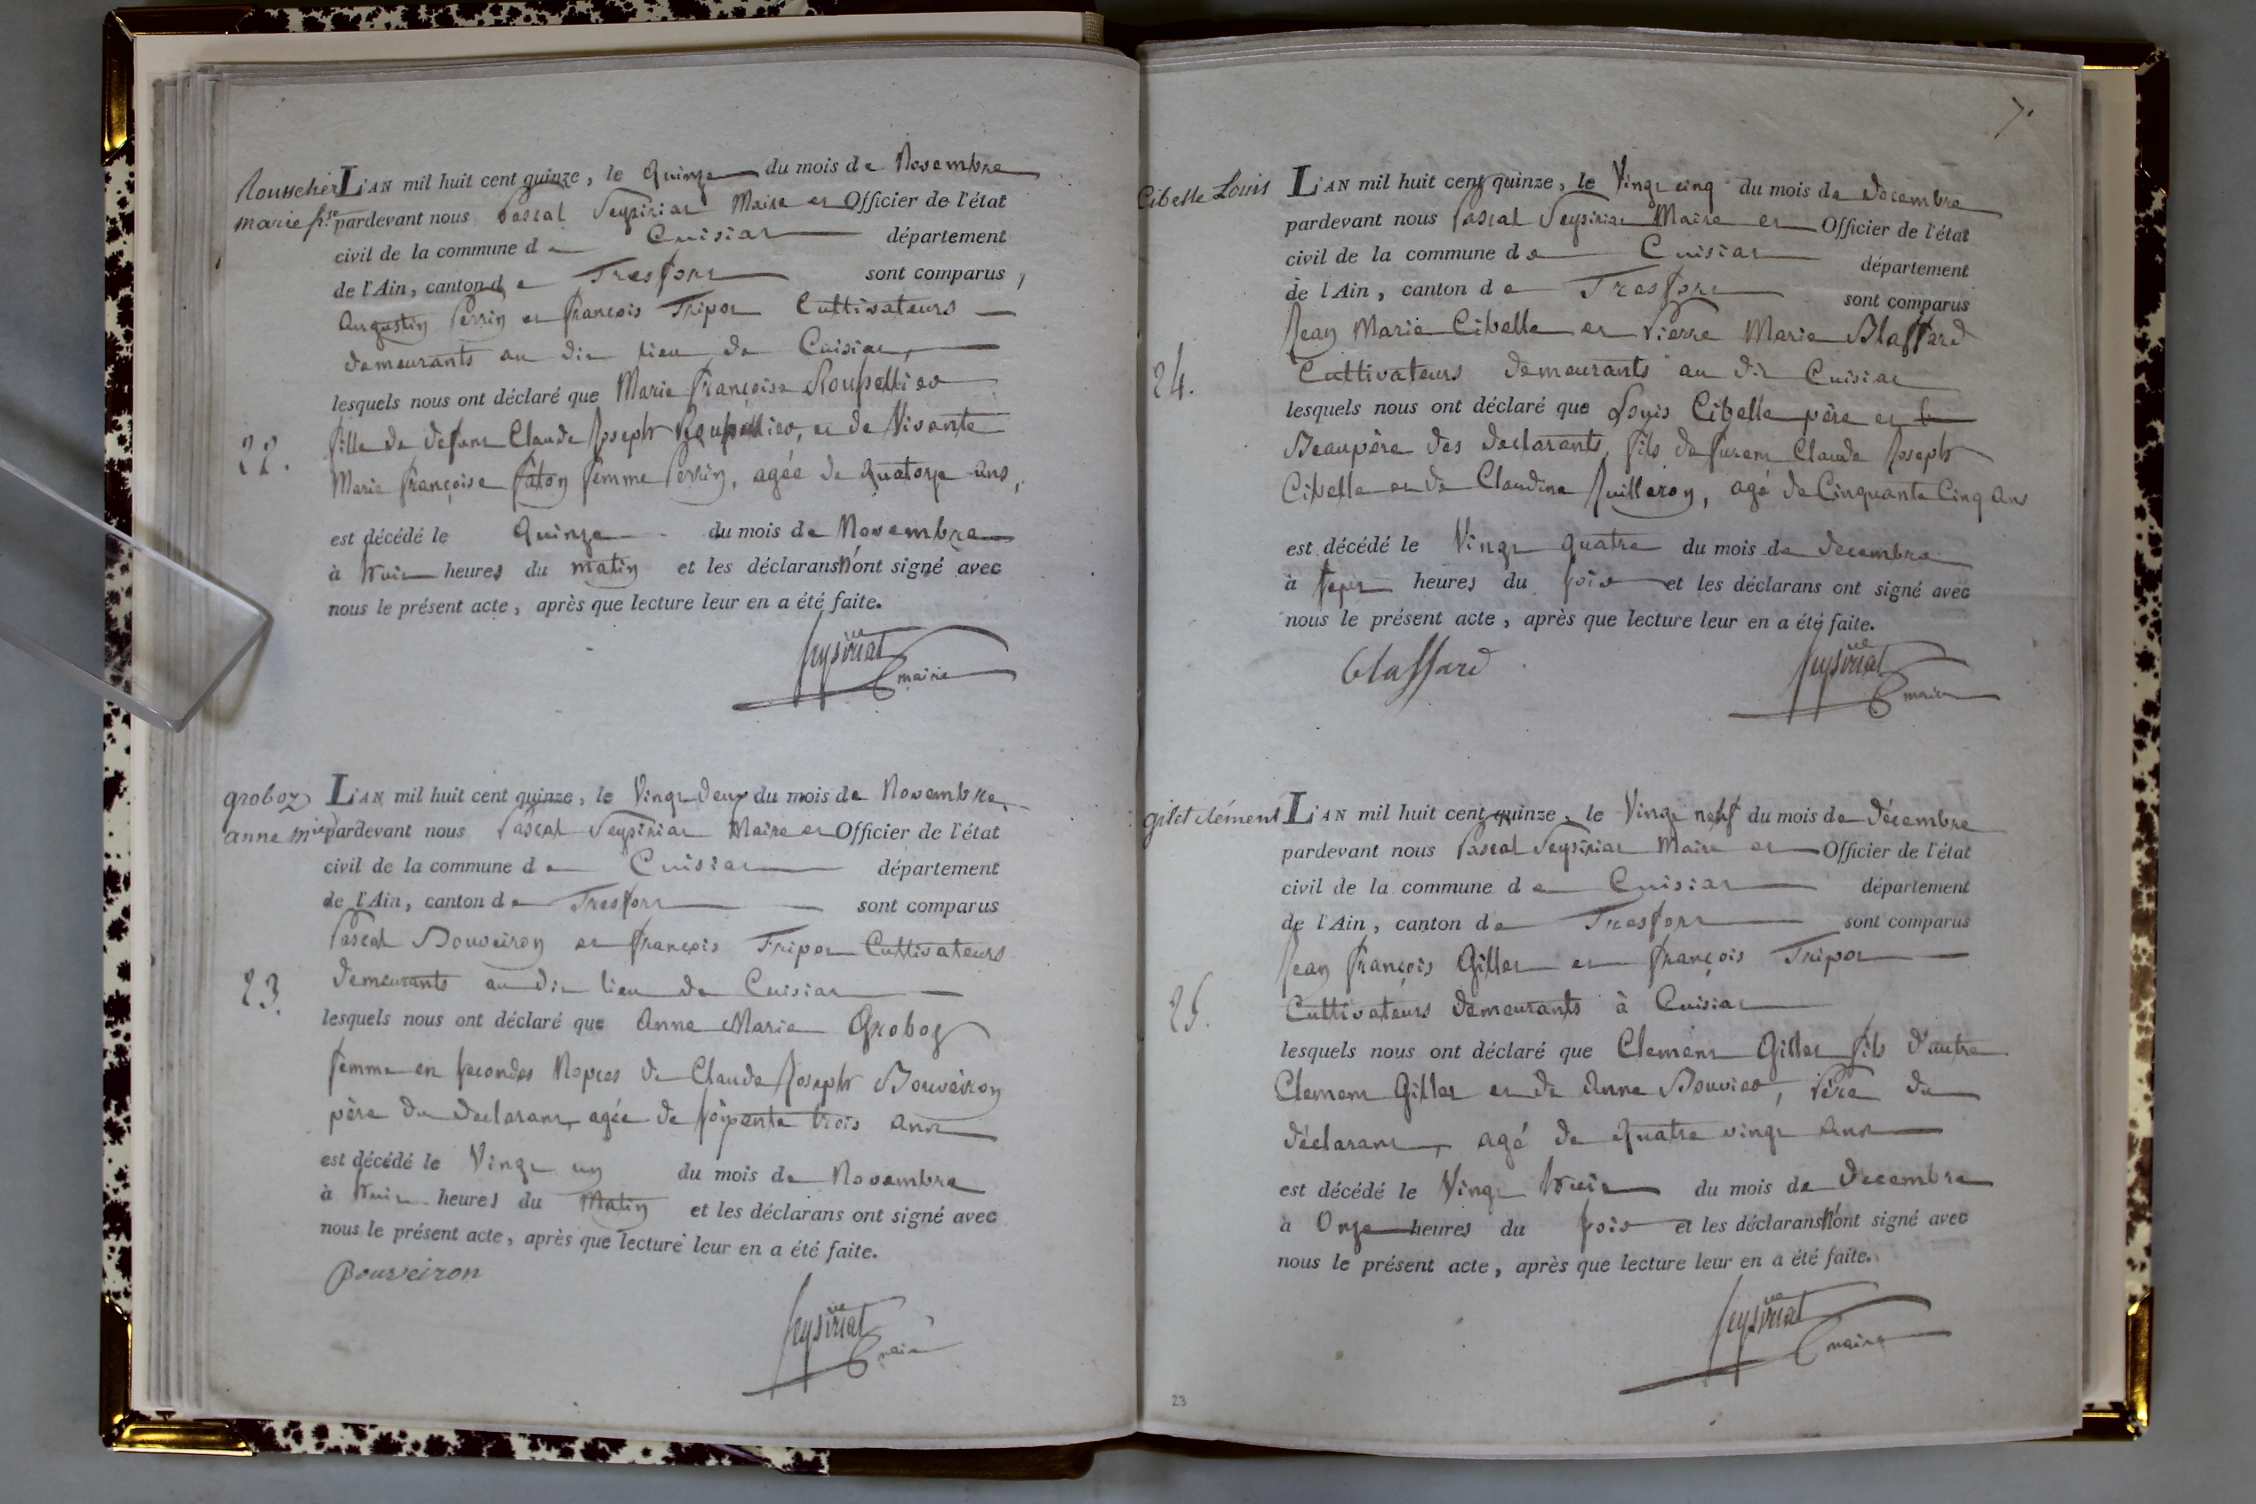 Rousselier
marie fse
22.
L'AN mil huit cent quinze, le Quinze du mois de Novembre
pardevant nous Pascal Seysiriat Maire et Officier de l'état
civil de la commune de Cuisiat département
de l'Ain, canton de Tresfort sont comparus,
Augustin Perrin et françois Tripoz Cultivateurs
demeurants au dit lieu de Cuisiat,
lesquels nous ont déclaré que Marie françoise
fille de defunt Claude Joseph et de Vivante
Marie françoise femme Perrin, agée de Quatorze ans,
est décédé le Quinze du mois de Novembre
à huit heures du matin et les déclarans n'ont signé avec
nous le présent acte, après que lecture leur en a été faite.
Seysiriat
maire
groboz
anne mie
23.
L'AN mil huit cent quinze, le Vingt deux du mois de Novembre
pardevant nous Pascal Seysiriat Maire et Officier de l'état
civil de la commune de Cuisiat département
de l'Ain, canton de Tresfort sont comparus
Pascal Bouveiron et françois Tripoz Cultivateurs
demeurants au dit lieu de Cuisiat
lesquels nous ont déclaré que Anne Marie Groboz
femme en secondes Nopces de Claude Joseph Bouveiron
père du declarant, agée de soixante trois ans
est décédé le Vingt un du mois de Novembre
à huit heures du Matin et les déclarans ont signé avec
nous le présent acte, après que lecture leur en a été faite.
Bouveiron
Seysiriat
maire
7.
Cibelle Louis
24.
L'AN mil huit cent quinze, le Vingt cinq du mois de decembre
pardevant nous Pascal Seysiriat Maire et Officier de l'état
civil de la commune de Cuisiat département
de l'Ain, canton de Tresfort sont comparus
Jean Marie Cibelle et Pierre Marie Blaffard
Cultivateurs demeurants au dit Cuisiat
lesquels nous ont déclaré que Louis Cibelle père et
Beaupère des declarants, fils de furent Claude Joseph
Cibelle et de Claudine Juilleron, agé de Cinquante Cinq ans
est décédé le Vingt quatre du mois de decembre
à sept heures du soir et les déclarans ont signé avec
nous le présent acte, après que lecture leur en a été faite.
blaffard
Seysiriat
maire
gilet clément
25.
L'AN mil huit cent quinze, le Vingt neuf du mois de décembre
pardevant nous Pascal Seysiriat Maire et Officier de l'état
civil de la commune de Cuisiat département
de l'Ain, canton de Tresfort sont comparus
Jean françois Gillet et françois Tripoz
Cultivateurs demeurants à Cuisiat
lesquels nous ont déclaré que Clement Gillet fils d'autre
Clement Gillet et de Anne Bouvier, Père du
déclarant, agé de Quatre vingt ans
est décédé le Vingt huit du mois de Decembre
à Onze heures du soir et les déclarans n'ont signé avec
nous le présent acte, après que lecture leur en a été faite.
Seysiriat
maire
23